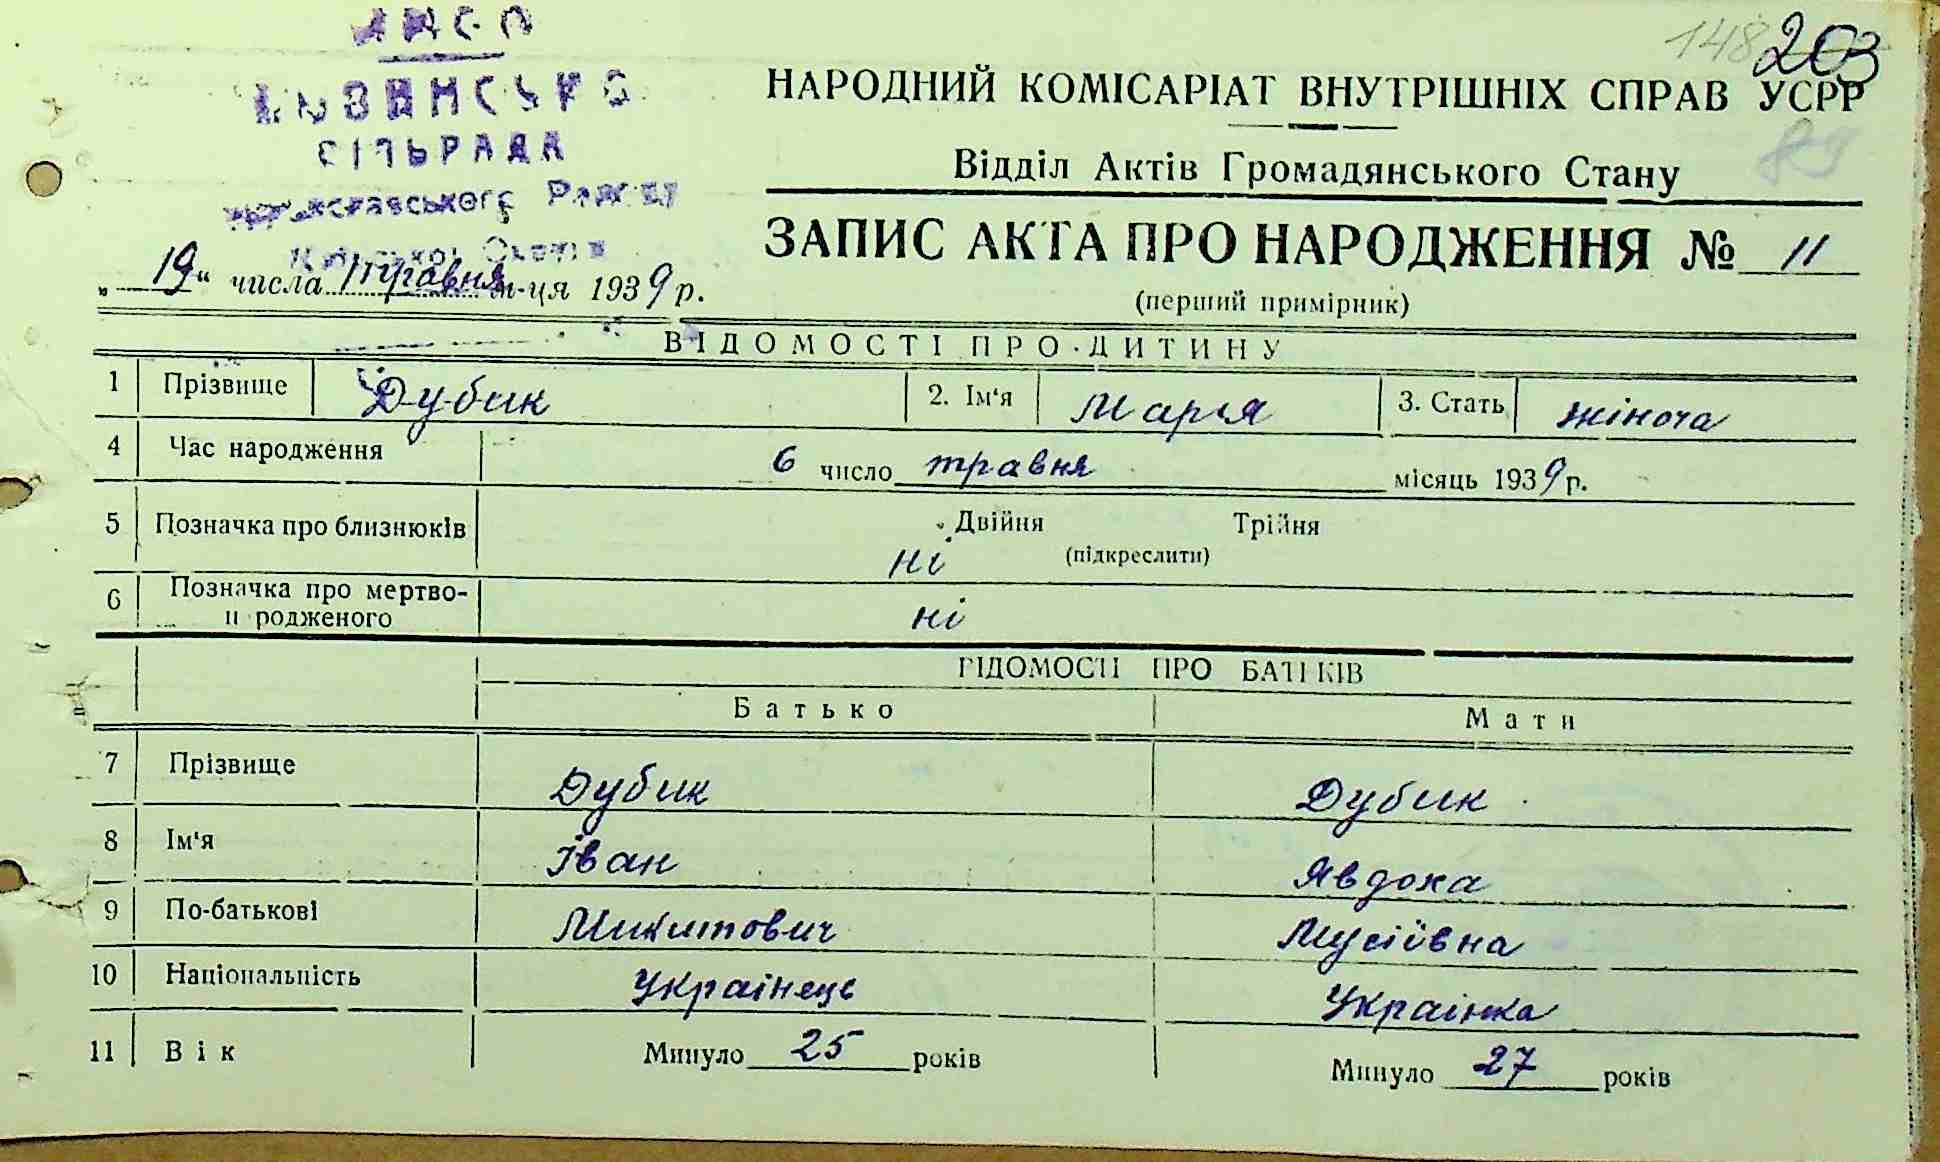 148 203
СІЛЬРАДА
НАРОДНИЙ КОМІСАРІАТ ВНУТРІШНІХ СПРАВ УСРР
89
Відділ Актів Громадянського Стану
ЗАПИС АКТА ПРО НАРОДЖЕННЯ № 11
„19“ числа травня м-ця 1939 р.
(перший примірник)
ВІДОМОСТІ ПРО ДИТИНУ
1 Прізвище Дубик 2. Ім‘я Марія 3. Стать жіноча
4 Час народження 6 число травня місяць 1939 р.
5 Позначка про близнюків Двійня Трійня
ні (підкреслити)
6 Позначка про мертво-
народженого ні
ВІДОМОСТІ ПРО БАТЬКІВ
Батько Мати
7 Прізвище Дубик Дубик
8 Ім‘я Іван Явдоха
9 По-батькові Микитович Мусіївна
10 Національність Українець Українка
11 Вік Минуло 25 років Минуло 27 років